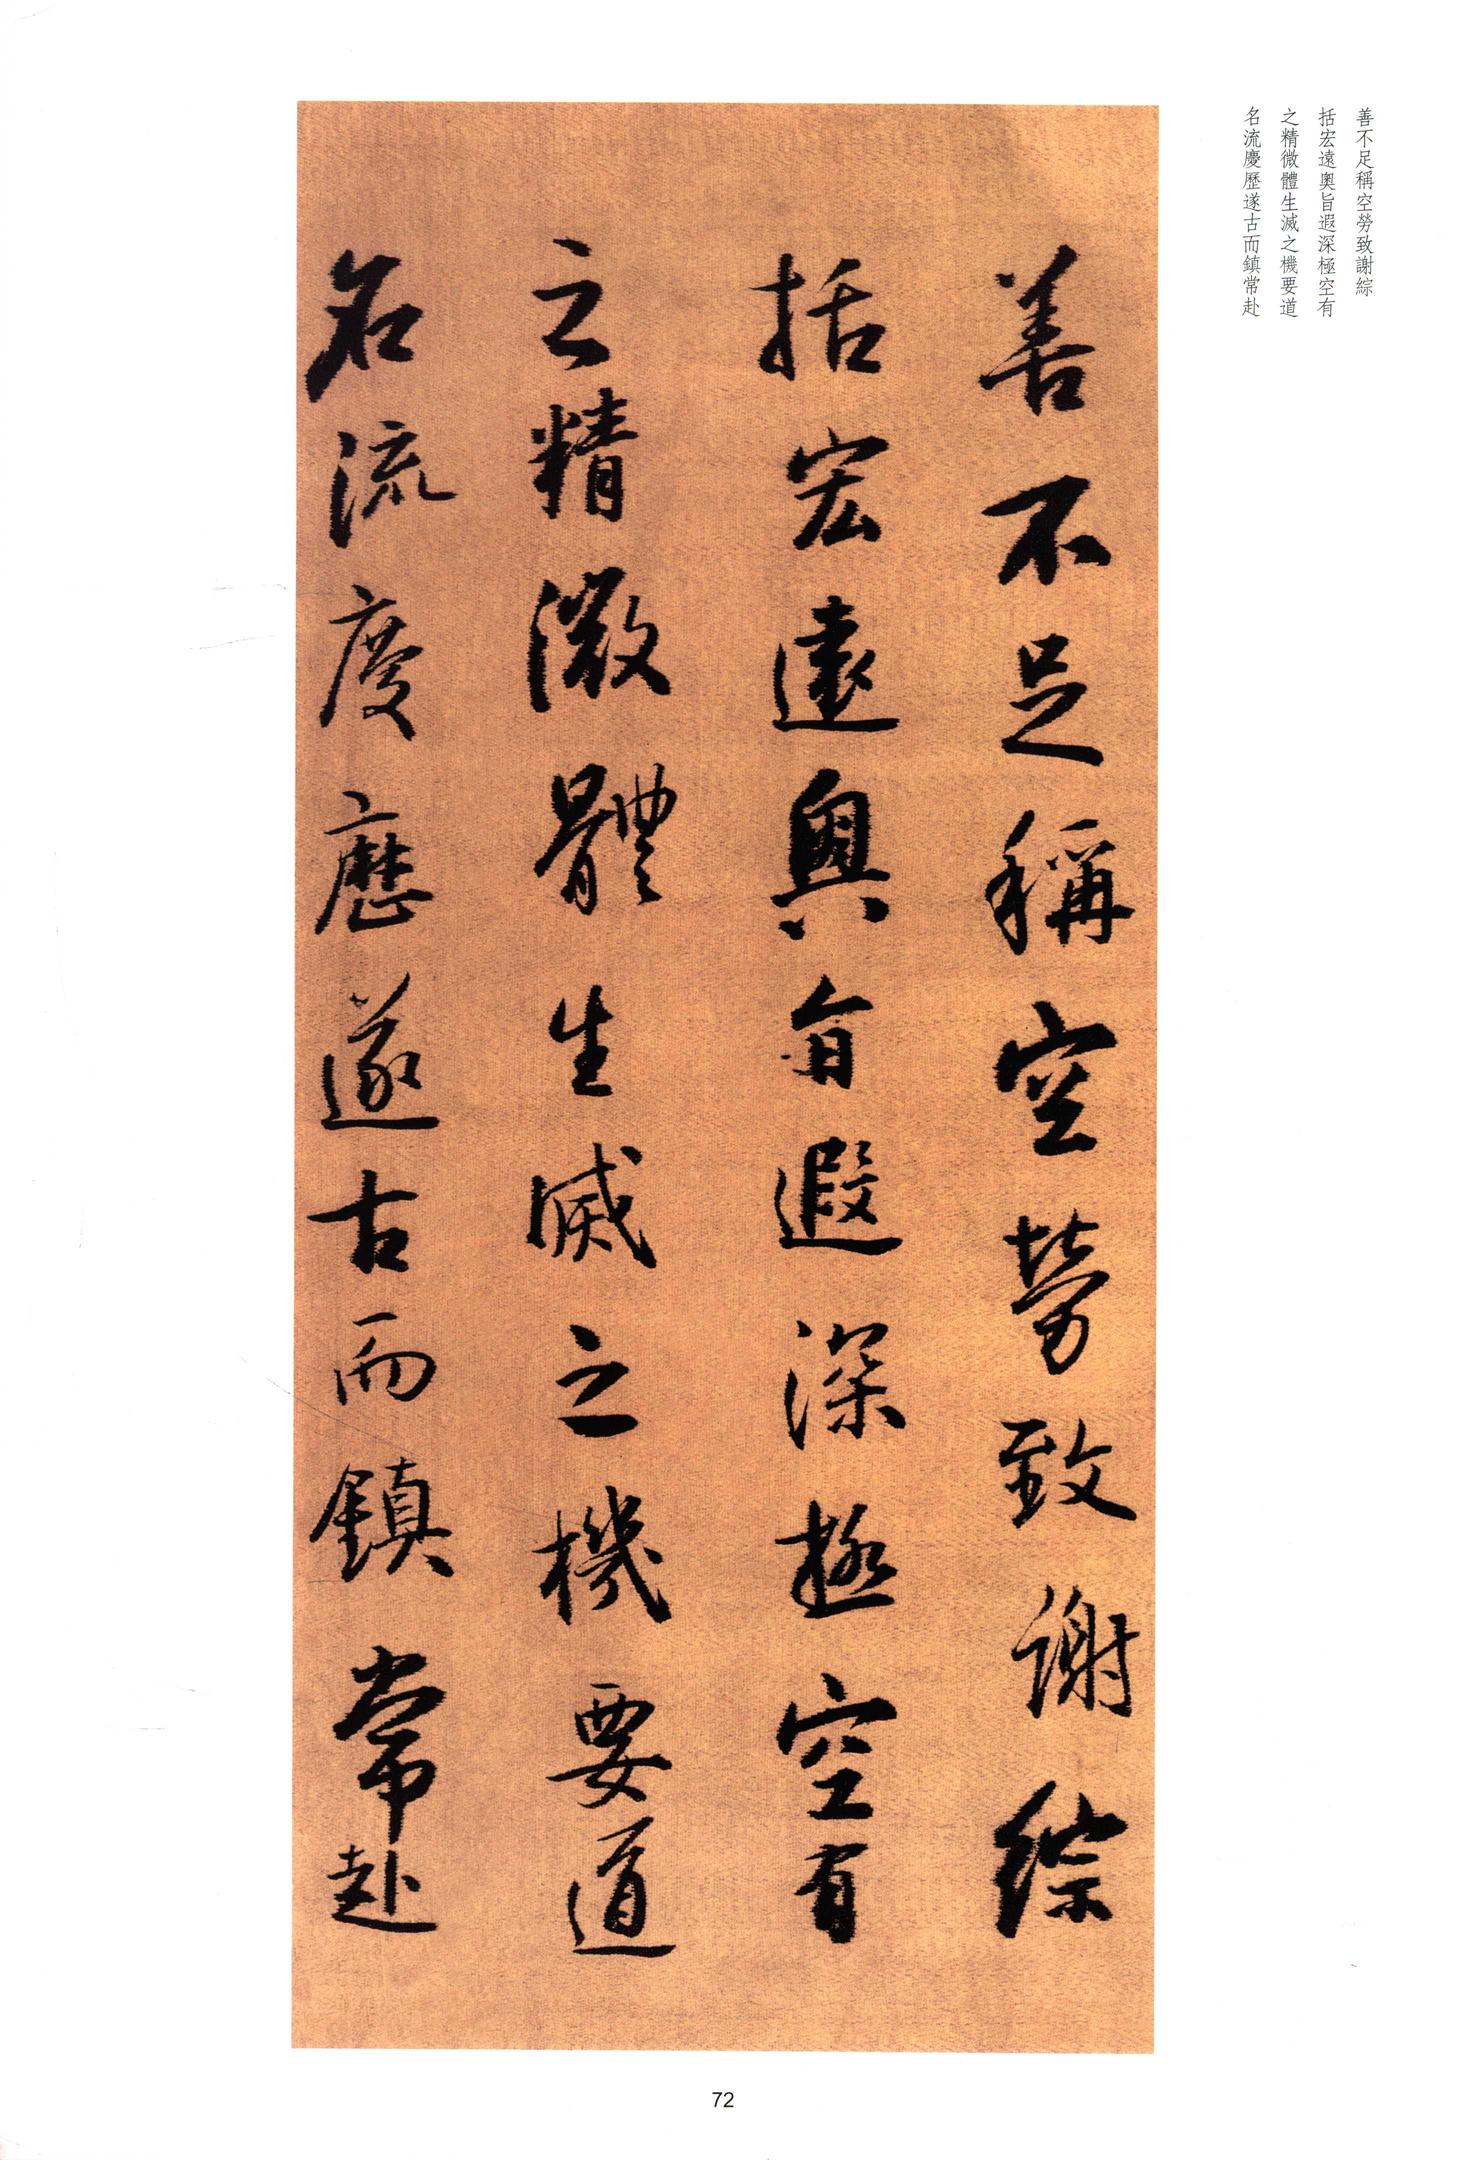 善不足稱空勞致謝綜
括宏遠奧旨遐深極空有
之精微體生滅之機要道
名流慶歷遂古而鎮常赴
善不足稱空勞致謝綜
括宏遠奧旨遐深極空有
之精微體生滅之機要道
名流慶歷遂古而鎮常赴
72